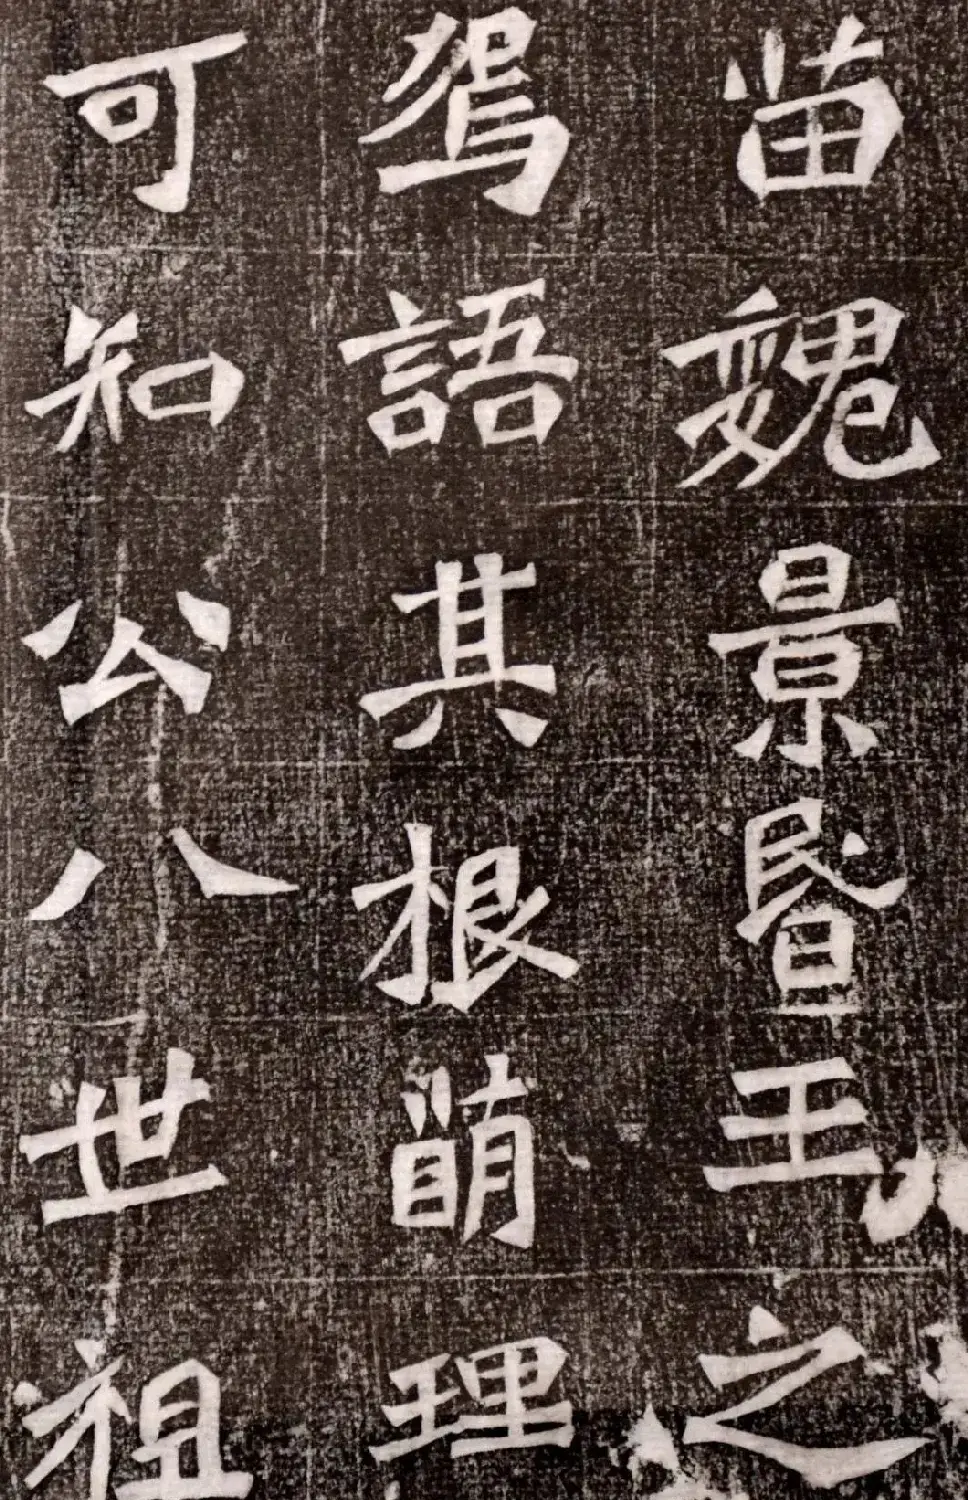 苗魏景昬王之
語其根萌理
可知公八世祖